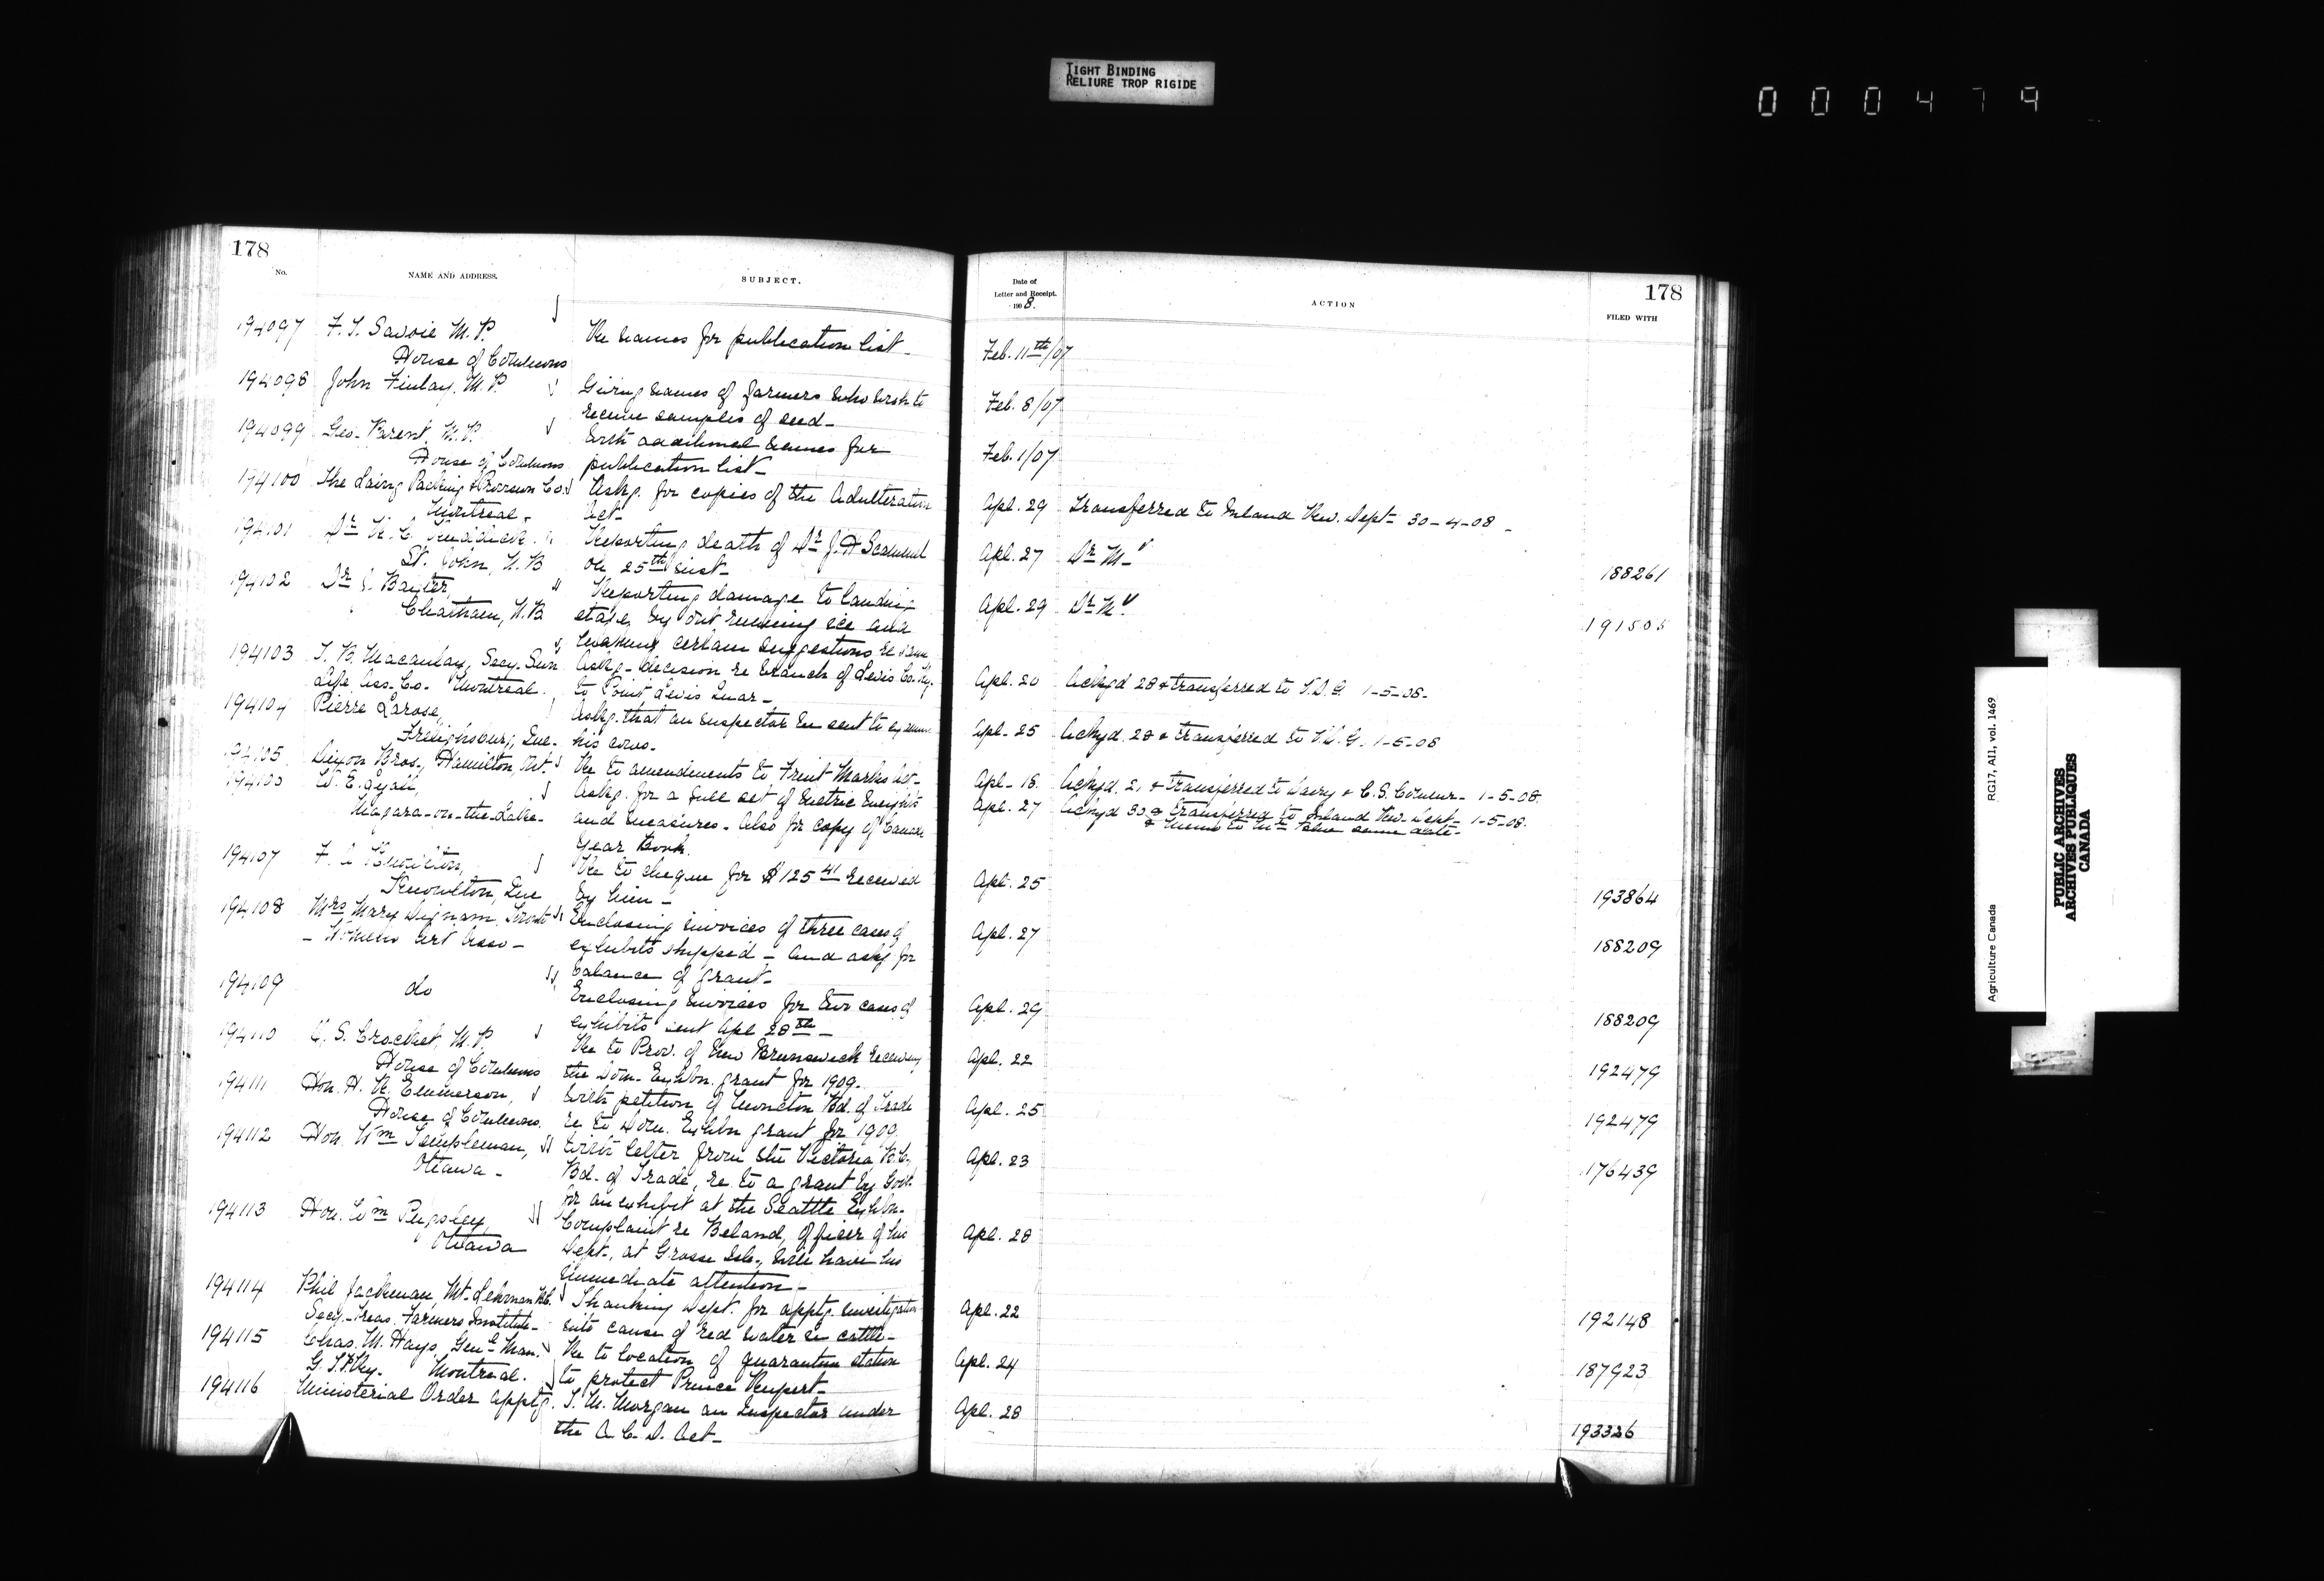 TIGHT BINDING
RELIURE TROP RIGIDE
000479
178
No.
NAME AND ADDRESS.
SUBJECT.
194097 F. T. Savoie M.P. Re names for publication list-
House of Commons
194098 John Finlay, M.P. Giving names of farmers who wish to
receive samples of seed-
194099 Geo. Parent, M.P. With additional names for
House of Commons publication list-
194100 The Laing Packing & Provision Co. Askg. for copies of the Adulteration
Montreal- Act-
194101 Dr Reporting death of Dr J. H
St. John, N.B on 25th inst-
194102 Dr J. Baxter, Reporting damage to landing
Chatham, N.B. stage by out running ice and
making certain suggestions re same
194103 T. B. Macaulay, Secy. Sun Askg- decision re branch of Levis Co. Ry.
Life Ass. Co. Montreal. to Point Levis Quar-
194104 Pierre Larose, Askg. that an inspector be sent to examine
Frelighsburg, Que- his cows-
194105 Dixon Bros., Hamilton, Ont. Re to amendments to Fruit Marks Act-
W. E. Lyall, Askg. for a full set of metric weights
Niagara-on-the-Lake- and measures- Also for copy of Canada
Year Book.
194107 F. Re to cheque for $125 41 received
Knowlton, Que by him-
194108 Mrs Mary Dignam, Toronto Enclosing invoices of three cases of
- Women's Art Asso- exhibits shipped- and askg for
balance of grant-
194109 do Enclosing invoices for two cases of
exhibits sent Apl 28th-
194110 O. S. Crocket, M.P. Re to Prov. of New Brunswick receiving
House of Commons the Dom. Exhbn. grant for 1909-
194111 Hon. H. R. Emmerson, With petition of Moncton Bd. of Trade
House of Commons. re to Dom. Exhbn grant for 1909
194112 Hon. Wm Templeman, With letter from the Victoria, B.C.,
Ottawa- Bd. of Trade, re to a grant by Govt.
for an exhibit at the Seattle Exhbn-
194113 Hon. Wm Pugsley, Complaint re Beland, officer of his
Ottawa Dept., at Grosse Isle, will have his
immediate attention-
194114 Phil Jackman, Mt. Lehman B.C. Thanking Dept. for apptg. investigation
Secy-Treas. Farmers Institute- into cause of red water in cattle-
194115 Chas. M. Hays, Genl Man. Re to location of quarantine station
G.T.P.Ry. Montreal. to protect Prince Rupert-
194116 Ministerial Order apptg. T. M. Morgan an Inspector under
the A. C. D. Act-
178
Date of
Letter and Receipt.
1908.
ACTION
FILED WITH
Feb. 11th/07
Feb. 8/07
Feb. 1/07
Apl. 29 Transferred to Inland Rev. Dept- 30-4-08-
Apl. 27 Dr M- 188261
Apl. 29 Dr M 191505
Apl. 20 Ackgd 28 & transferred to V.D.G. 1-5-08-
Apl- 25 Ackgd. 28 & transferred to V.D.G. 1-5-08
Apl- 18. Ackgd. 21 & transferred to Dairy & C.S. Commr- 1-5-08.
Apl. 27 Ackgd 30 & transferred to Inland Rev. Dept- 1-5-08.
& memo to Mr Blue same date-
Apl. 25 193864
Apl. 27 188209
Apl. 29 188209
Apl. 22 192479
Apl. 25 192479
Apl. 23 176439
Apl. 28
Apl. 22 192148
Apl. 24 187923
Apl. 28 193326
Agriculture Canada RG17, AII, vol. 1469
PUBLIC ARCHIVES
ARCHIVES PUBLIQUES
CANADA